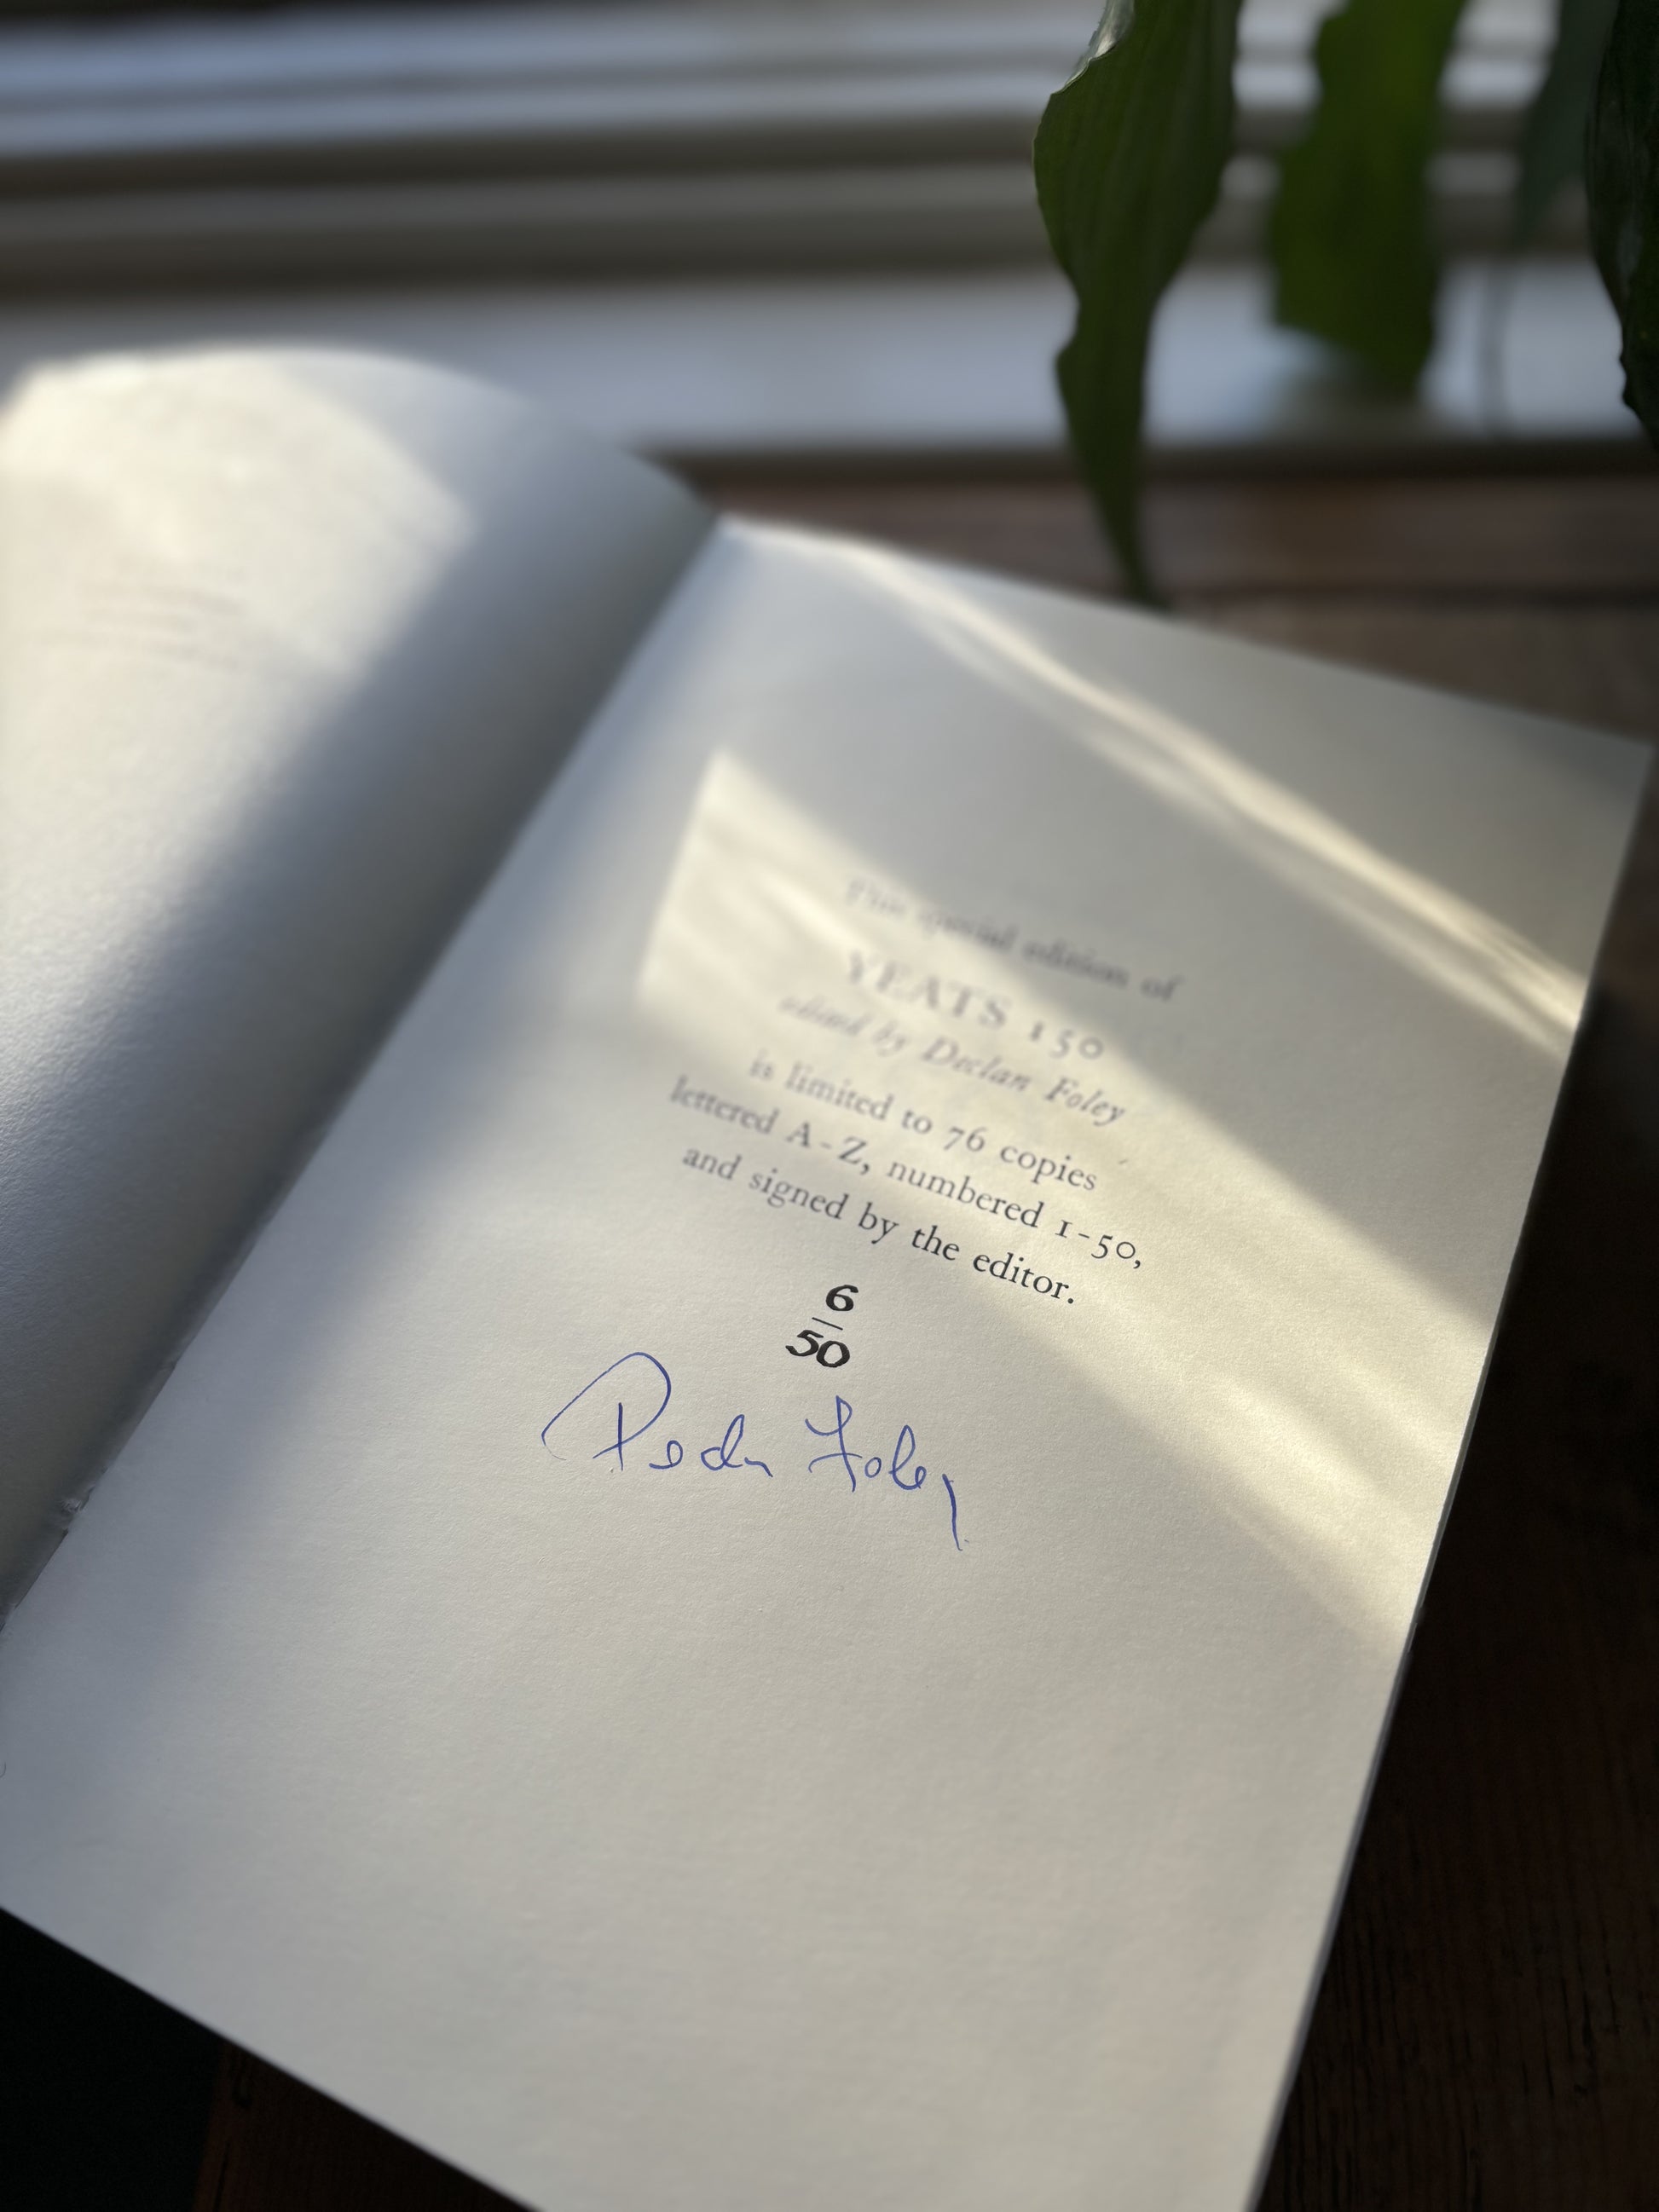 This special edition of
YEATS 150
edited by Declan Foley
is limited to 76 copies
lettered A-Z, numbered 1-50,
and signed by the editor.
6
50
Foley